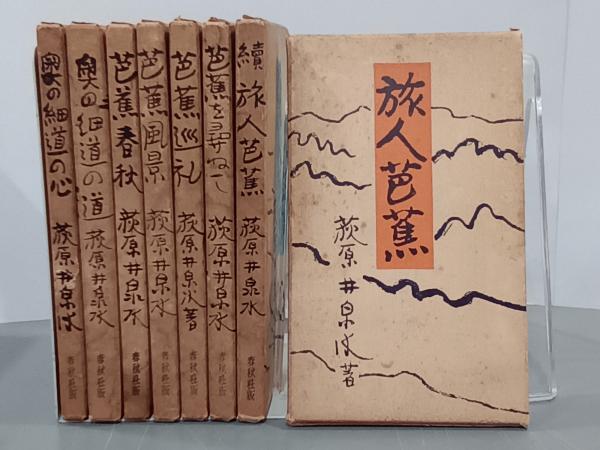 奥の細道の心 荻原井泉水 春秋社版
奥の細道の道 荻原井泉水 春秋社版
芭蕉春秋 荻原井泉水 春秋社版
芭蕉風景 荻原井泉水 春秋社版
芭蕉巡礼 荻原井泉水著 春秋社版
芭蕉を尋ねて 荻原井泉水 春秋社版
續 旅人芭蕉 荻原井泉水 春秋社版
旅人芭蕉
荻原井泉水著